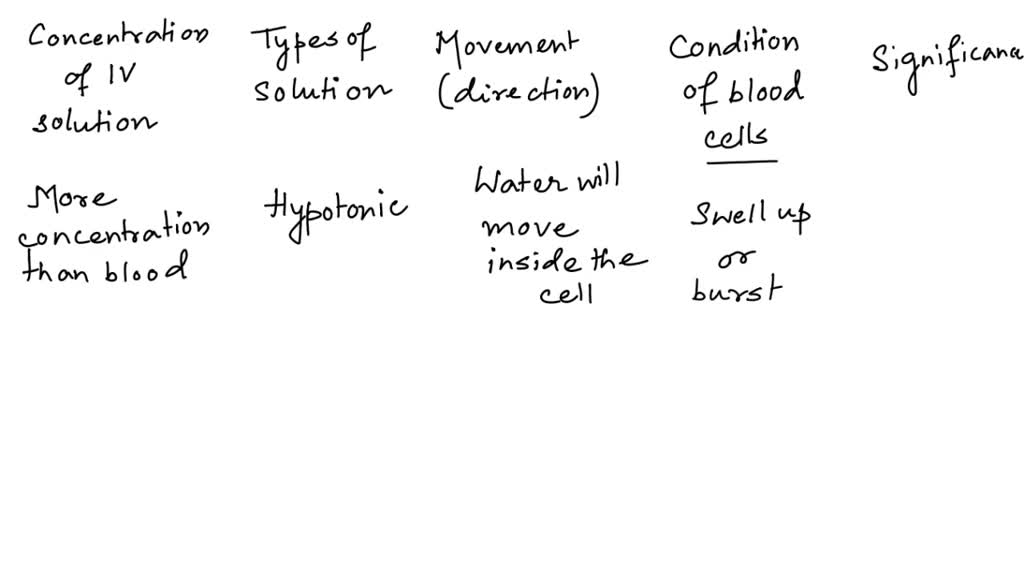 Concentration of IV solution
Types of solution
Movement (direction)
Condition of blood cells
Significance
More concentration than blood
Hypotonic
Water will move inside the cell
Swell up or burst